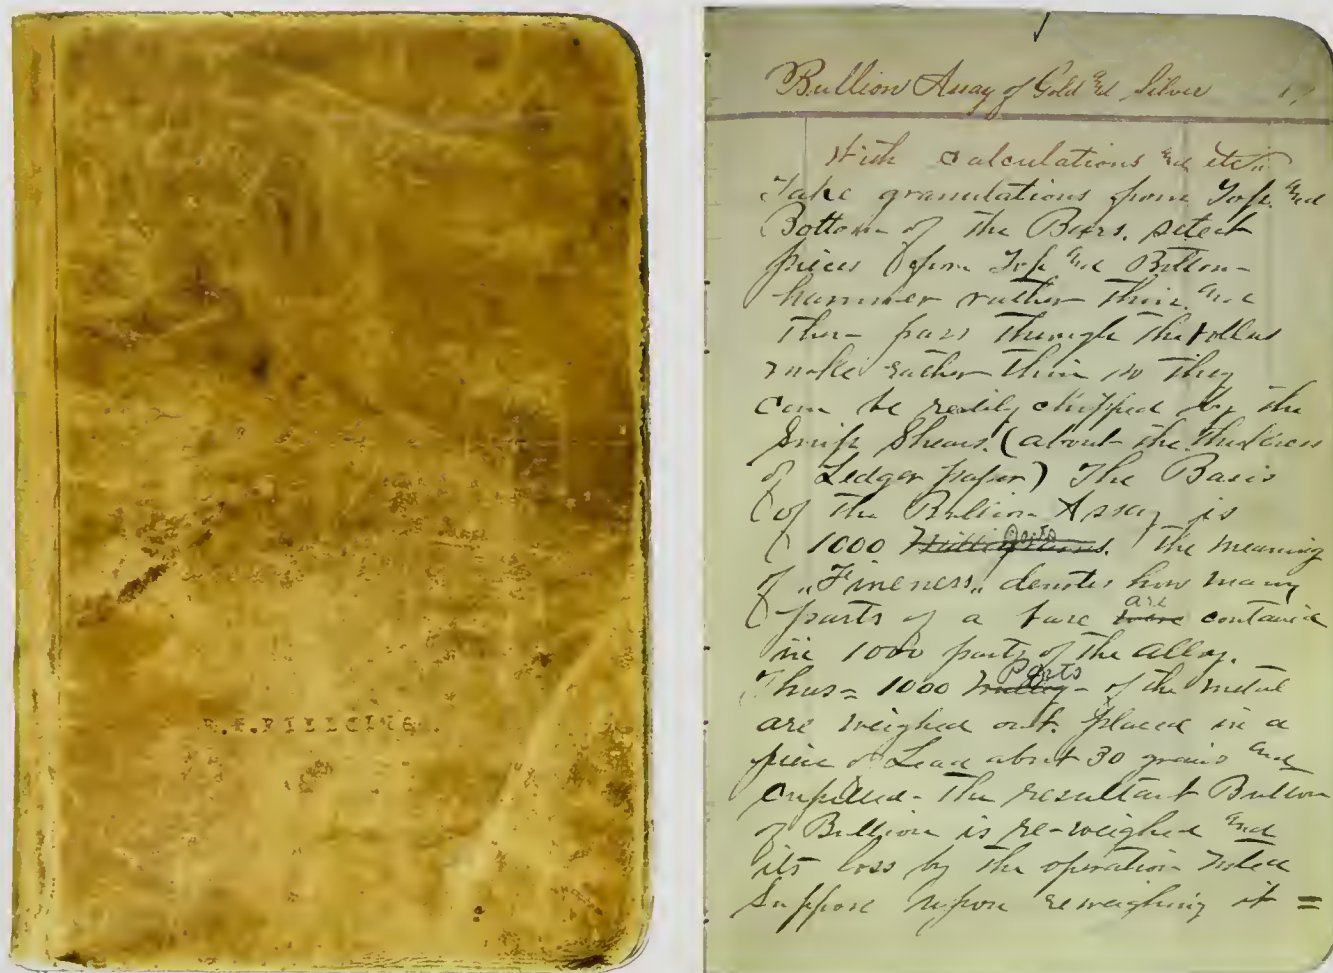 Bullion Assay of Gold and Silver
With calculations and etc
Take granulations from Top and
Bottom of the Bars. select
pieces from Top and Bottom
hammer rather thin and
then pass through the rolles
make rather thin so they
can be readily chipped by the
Snip Shears. (about the thickness
of Ledger paper) The Basis
of the Bullion Assay is
1000 Milligrams. Parts The meaning
of „Fineness„ denotes how many
parts of a are were contained
in 1000 parts of the alloy.
Thus = 1000 Parts of the metal
are weighed out. placed in a
piece of Lead about 30 grains and
cupelled - The resultant Button
of Bullion is re-weighed and
its loss by the operation noted
Suppose upon reweighing it =